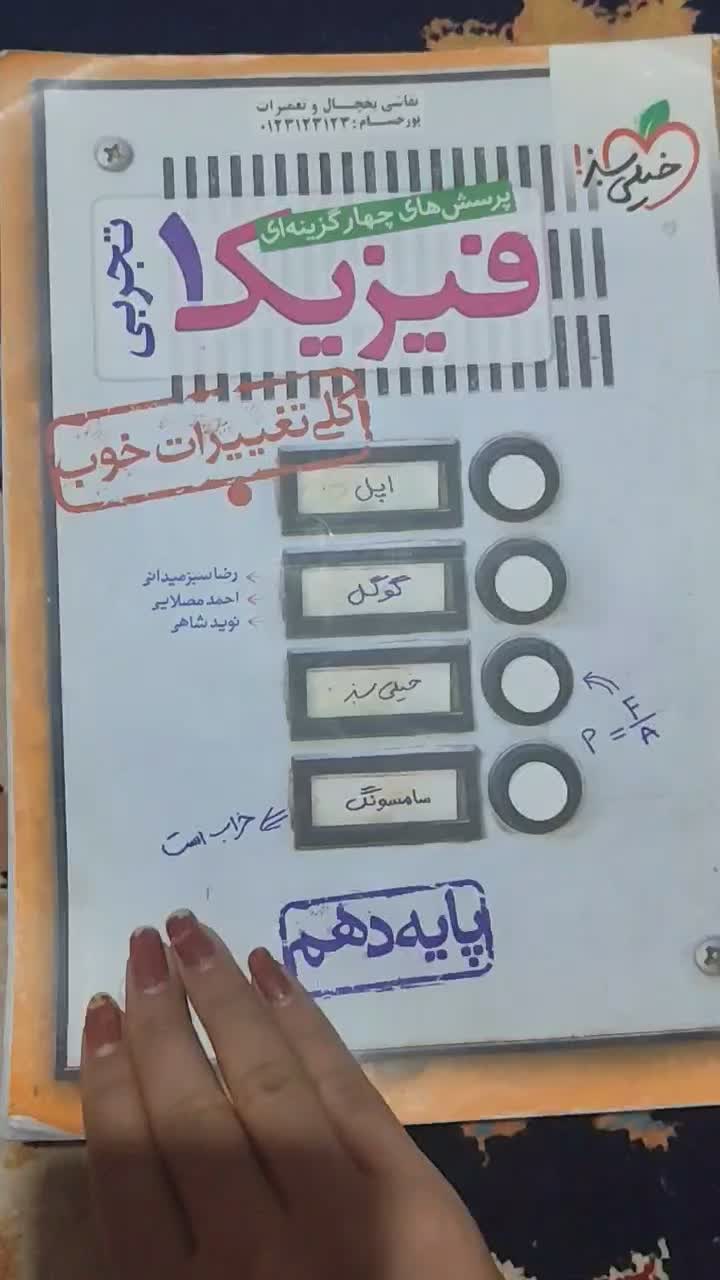 نقاشی یخچال و تعمیرات
پورحسام: ۰۱۲۳۱۲۳۱۲۳
خیلی سبز!
پرسش‌های چهارگزینه‌ای
فیزیک ۱
تجربی
کلی تغییرات خوب
اپل
گوگل
خیلی سبز
سامسونگ
رضا سبزمیدانی
احمد مصلایی
نوید شاهی
P = F/A
خراب است
پایه دهم